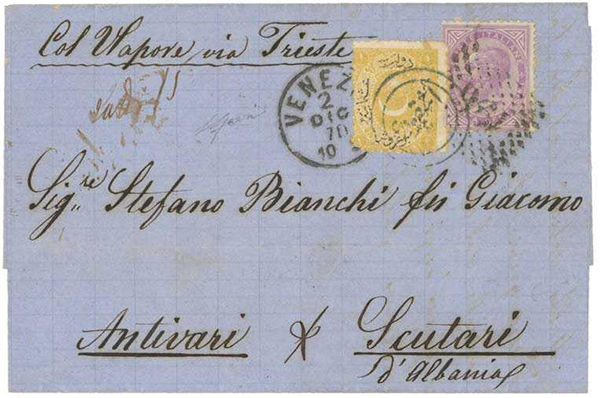 Col Vapore via Trieste
VENEZ
2
DIC
70
10
Sig.re Stefano Bianchi fu Giacomo
Antivari &
Scutari
d'Albania